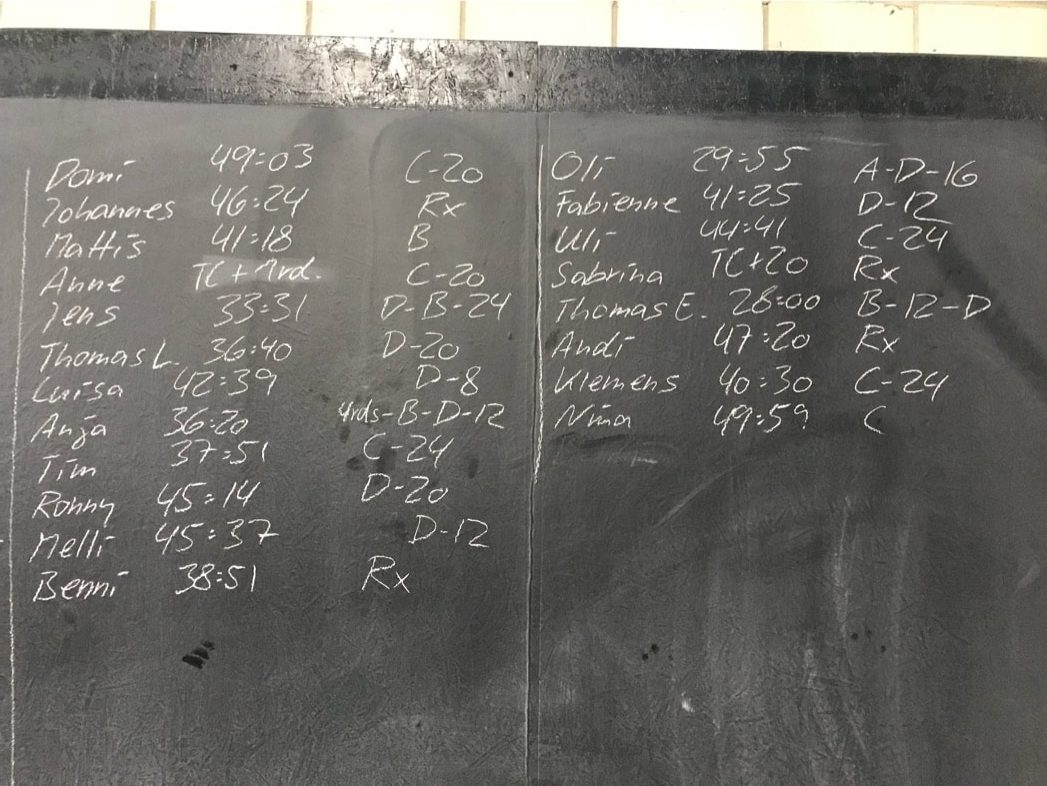 Domi 49:03 C-20
Johannes 46:24 Rx
Mattis 41:18 B
Anne TC+1rd. C-20
Jens 33:31 D-B-24
Thomas L. 36:40 D-20
Luisa 42:39 D-8
Anja 36:20 4rds-B-D-12
Tim 37:51 C-24
Ronny 45:14 D-20
Melli 45:37 D-12
Benni 38:51 Rx
Oli 29:55 A-D-16
Fabienne 41:25 D-12
Uli 44:41 C-24
Sabrina TC+20 Rx
Thomas E. 28:00 B-12-D
Andi 47:20 Rx
Klemens 40:30 C-24
Nina 49:59 C